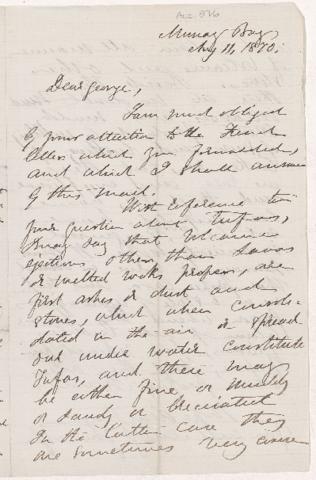 Acc. 546
Murray Bay,
Aug 11, 1870.
Dear George,
I am much obliged
by your attention to the French
letters which you forwarded,
and which I shall answer
by this mail.
With reference to
your question about Tufas,
I may say that volcanic
ejections other than lavas
or melted rocks proper, are
first ashes or dust and
stones, which when consoli-
dated in the air or spread
out under water constitute
Tufas, and these may
be either fine or muddy
or sandy or brecciated
In the latter case they
are sometimes very coarse